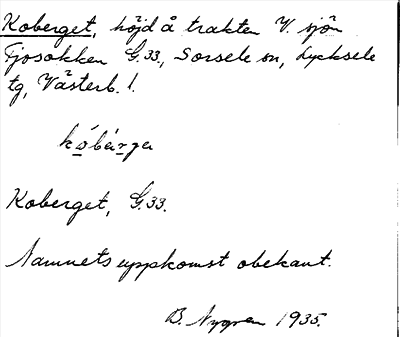 Koberget, höjd å trakten V. sjön
Fjosokken G.33., Sorsele sn, Lycksele
tg, Västerb. l.
kóbärja
Koberget, G.33.
Namnets uppkomst obekant.
B. Nygren 1935.